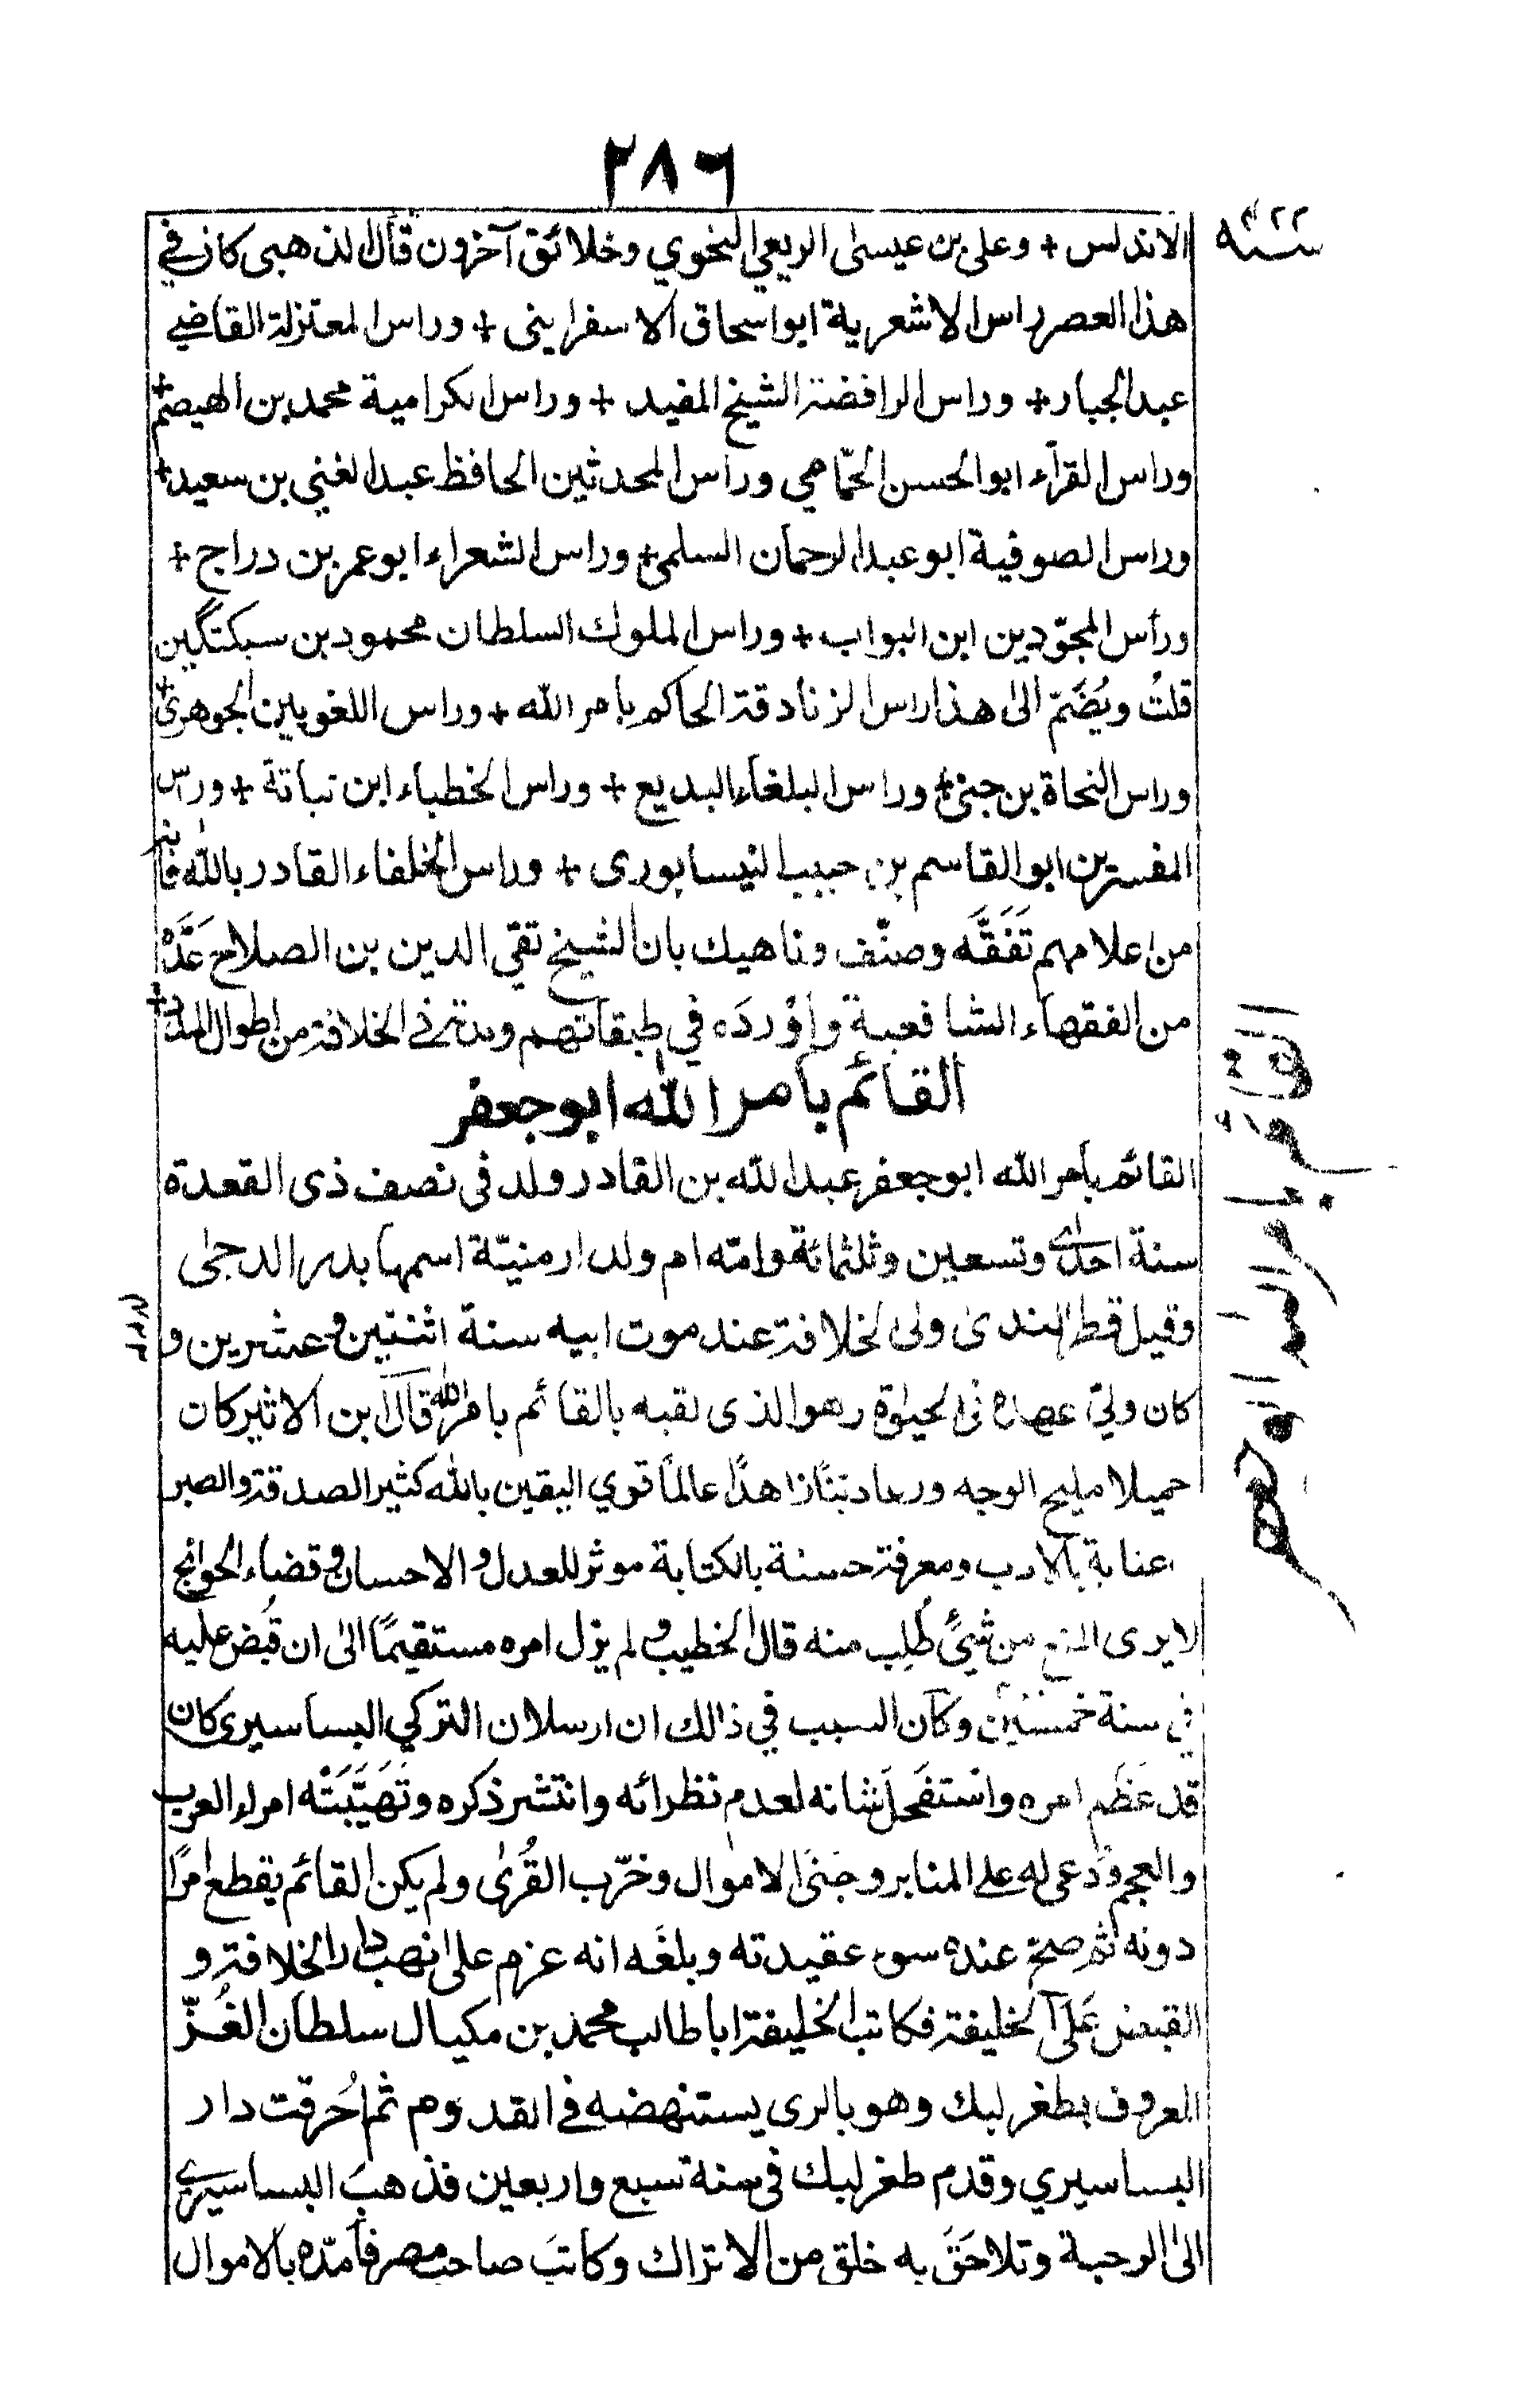 ٢٨٦
سنة ٤٢٢
الاندلس + وعلى بن عيسىٰ الربعي النحوي وخلائق آخرون قال الذهبى كان في
هذا العصر راس الاشعرية ابو اسحاق الاسفراينى + وراس المعتزلة القاضي
عبد الجبار + وراس الرافضة الشيخ المفيد + وراس الكرامية محمد بن الهيصم +
وراس القرآء ابو الحسن الحمّامي وراس المحدثين الحافظ عبد الغني بن سعيد +
وراس الصوفية ابو عبد الرحمان السلمى + وراس الشعراء ابو عمر بن دراج +
ورأس المجوّدين ابن البواب + وراس الملوك السلطان محمود بن سبكتگين
قلتُ ويُضَمّ الىٰ هذا راس الزنادقة الحاكم بامر الله + وراس اللغويين الجوهرى +
وراس النحاة بن جنى + وراس البلغاء البديع + وراس الخطباء ابن نباتة + وراس
المفسرين ابو القاسم بن حبيب النيسابورى + وراس الخلفاء القادر بالله فانه
من اعلامهم تَفَقَّه وصنّف وناهيك بان الشيخ تقي الدين بن الصلاح عَدَّهُ
من الفقهاء الشافعية وأوْردَه في طبقاتهم ومدته في الخلافة من اطوال المدد +
القائم بامر الله ابو جعفر
القائم بامر الله ابو جعفر عبد الله بن القادر ولد فى نصف ذى القعدة
سنة احدىٰ وتسعين وثلثمائة وامّه ام ولد ارمنيّة اسمها بدر الدجىٰ
وقيل قطر الندىٰ ولى الخلافة عند موت ابيه سنة اثنتين وعشرين و
كان وليّ عهده فى الحيٰوة وهو الذى لقبه بالقائم بامر الله قال ابن الاثير كان
جميلا مليح الوجه ورعا دينًا زاهدًا عالمًا قوي اليقين بالله كثير الصدقة والصبر
عناية بالادب ومعرفة حسنة بالكتابة موثر للعدل والاحسان وقضاء الحوائج
لا يرى المنع من شئٍ طُلِب منه قال الخطيب و لم يزل امره مستقيمًا الىٰ ان قُبض عليه
في سنة خمسين وكان السبب في ذالك ان ارسلان التركي البساسيرى كان
قد عَظُم امره واستفحل شانه لعدم نظرائه وانتشر ذكره وتَهَيَّبَتْه امراء العرب
والعجم ودُعى له على المنابر وجَبَى الاموال وخرّب القُرىٰ ولم يكن القائم يقطع امرًا
دونه ثم صحّ عنده سوء عقيدته وبلغَه انه عزم على نهب دار الخلافة و
القبض عَلَى الخليفة فكاتب الخليفة ابا طالب محمد بن مكيال سلطان الغُزّ
المعروف بطغرلبك وهو بالرى يستنهضه في القدوم ثم اُحرقت دار
البساسيري وقدم طغرلبك فى سنة سبع واربعين فذهب البساسيرى
الىٰ الرحبة وتلاحَقَ به خلق من الاتراك وكاتب صاحب مصر فأمدّه بالاموال
القائم بامر الله ابو جعفر